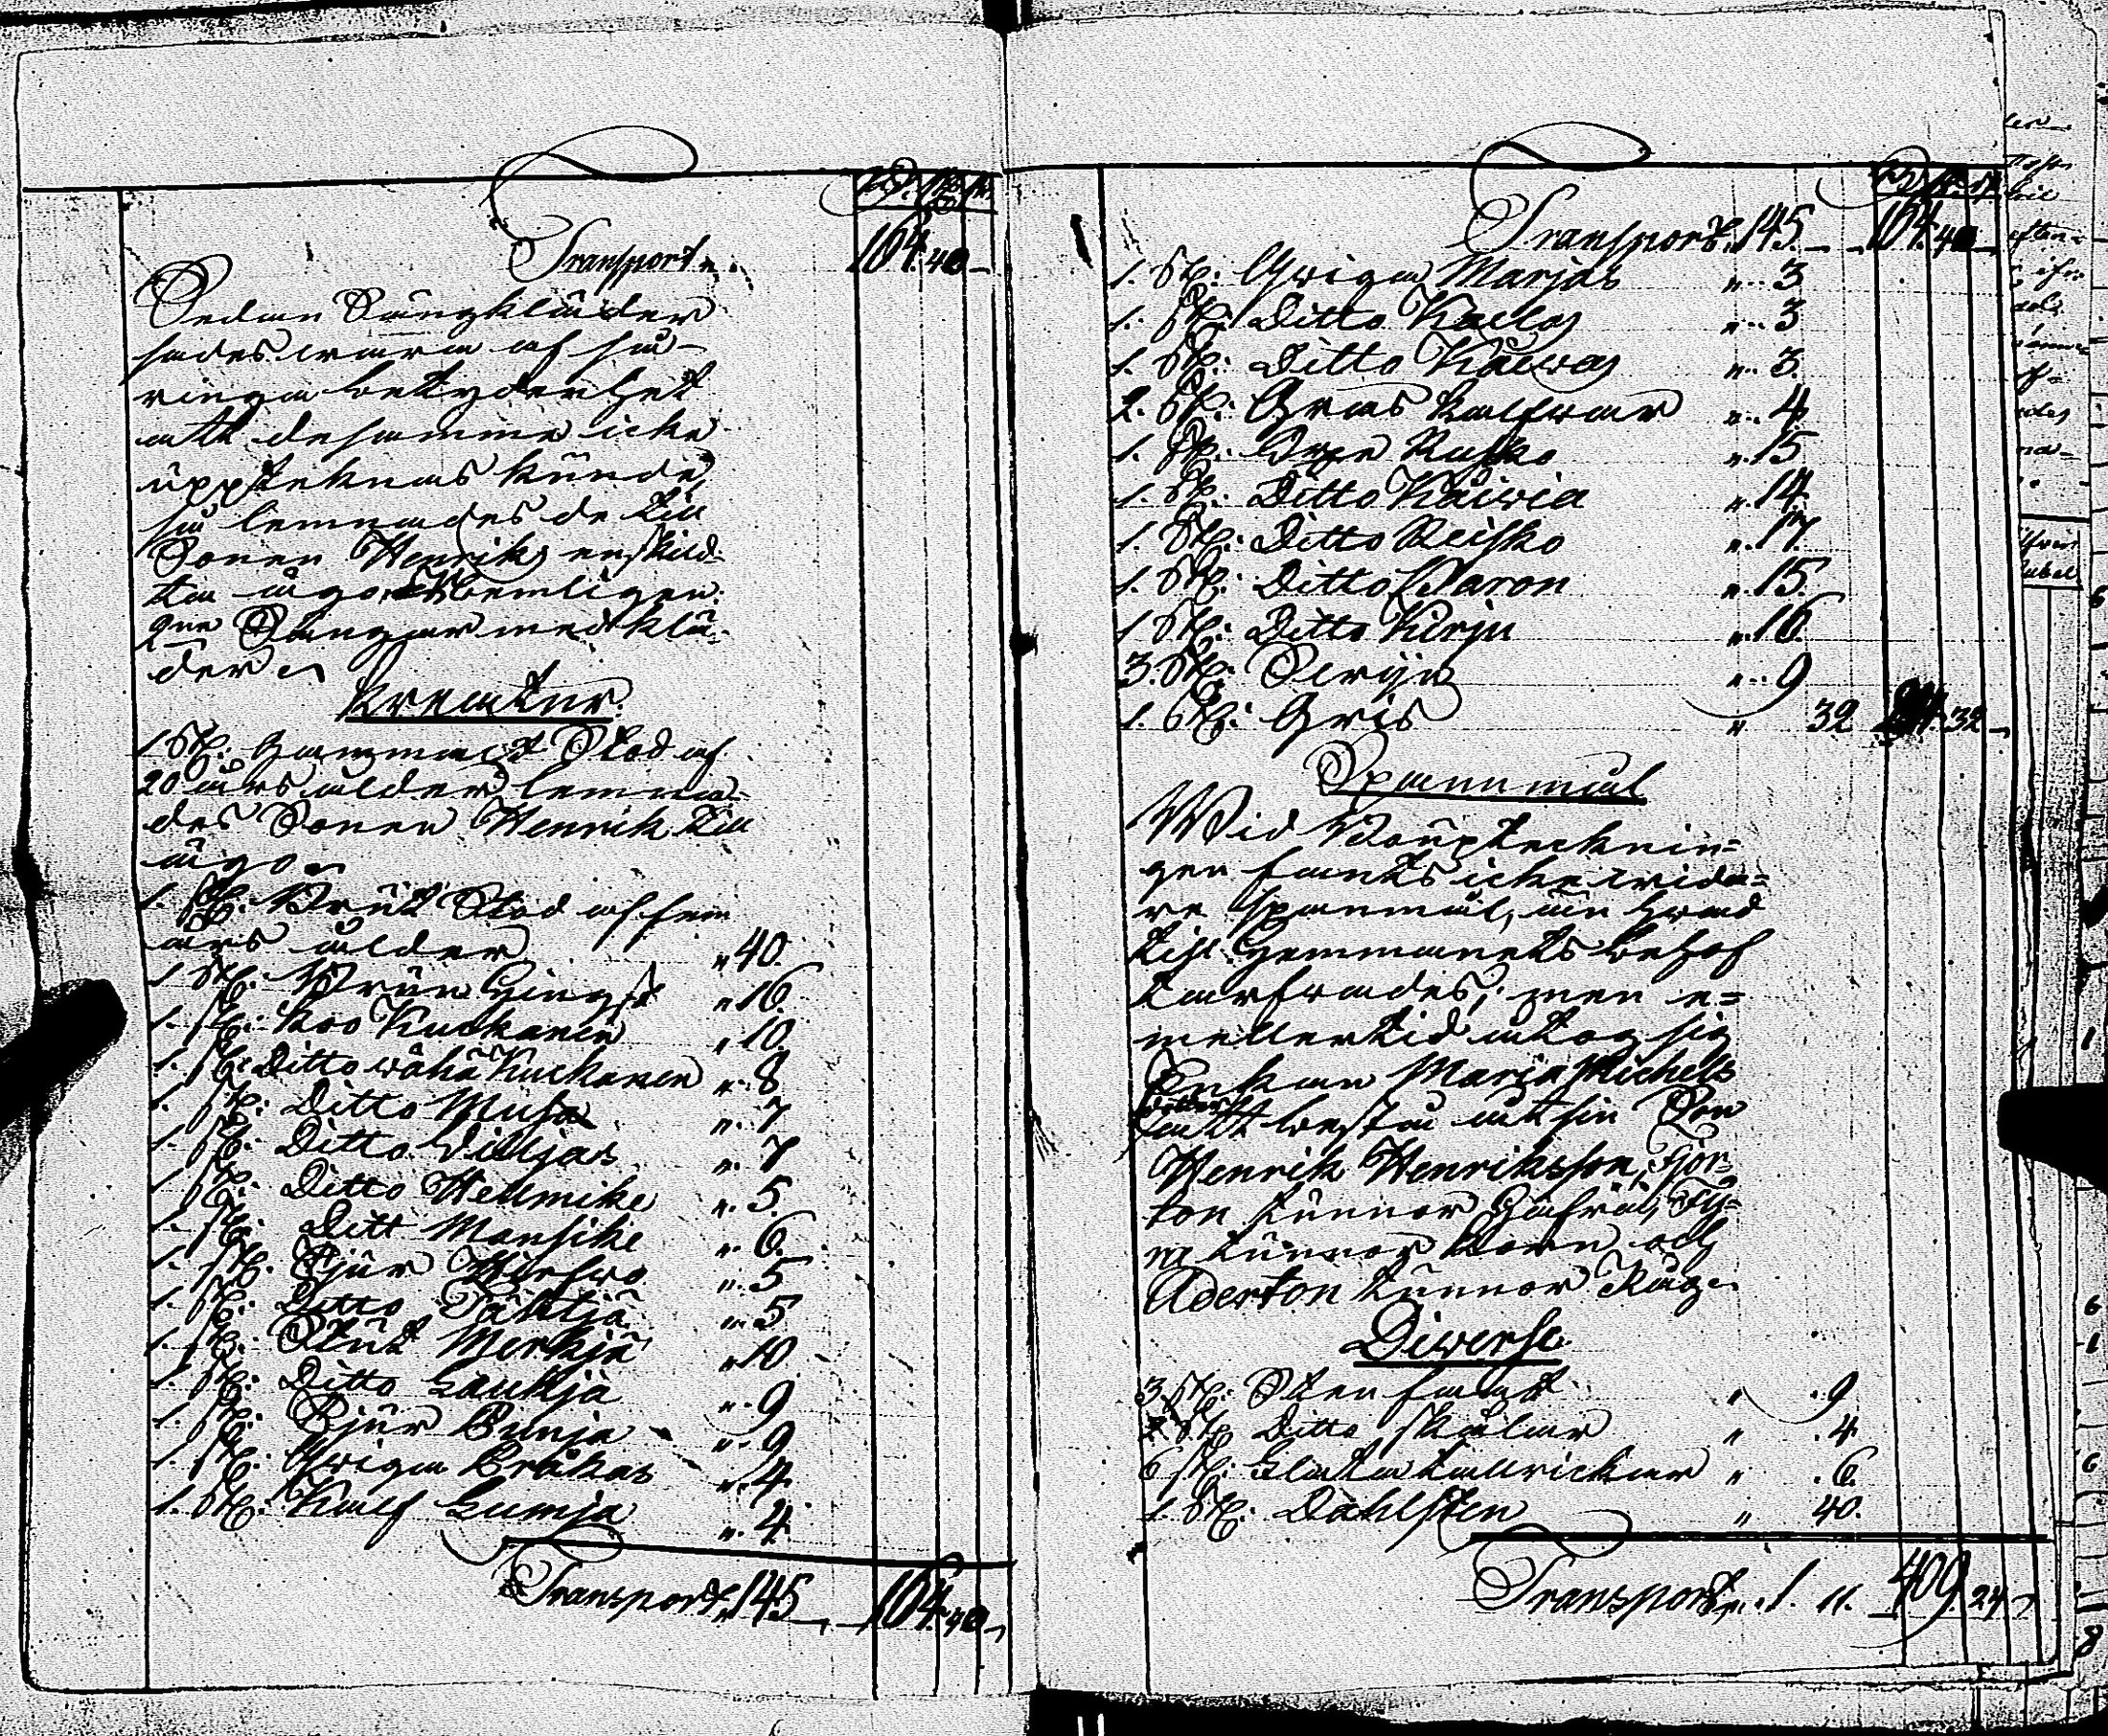 Transport 164. 40
Sedan Sängkläder
sades wara af så
ringa betydenhet
att desamma icke
uppteknas kunde,
så lemnades de till
Sonen Henriks enskild-
ta ägo, Nemligen:
2ne Sängar med klä-
der
Kreatur.
1. St: Gammalt Stod af
20 års ålder lemna-
des Sonen Henrik till
ägo
1. St: Brunt Stod af fem
års ålder " 40.
1. St: Brun Hingst " 16.
1. St: Koo Kuckanen " 10.
1. St: Ditto wähä Kuckanen " 8
1. St: Ditto Musta " 7
1. St: Ditto Villjas " 7
1. St: Ditto Hellmike " 5.
1. St: Ditt Mansike " 6.
1. St: Tjur " 5
1. St: Ditto Tähtjä " 5
1. St: Stut Merkjä " 10.
1. St: Ditto Laukja " 9
1. St: Tjur Punja " 9
1. St: Qwiga Bräkas " 4.
1. St: Kalf Lumja " 4.
Transport " 145 164. 40
Transport " 145. 164. 40
1. St: Qwiga Marjas " 3
1. St: Ditto Kaclas " 3
1. St: Ditto Käewas " 3.
2. St: Gräs kalfwar " 4.
1. St: Oxe Rusko " 15
1. St: Ditto Käiwia " 14
1. St: Ditto Reisko " 17.
1. St: Ditto Paron " 15.
1. St: Ditto Kirju " 16.
3. St: Swijn " 9
1. St: Gris " 32 32
Spannmål
Wid Bouptecknin-
gen fants icke wida-
re Spanmål, än hwad
till Hemmanets behof
tarfwades; men e-
mellertid åtog sig
Enkan Maria Michels
dotter
att bestå åt sin Son
Henrik Henriksson, Fjor-
ton tunnor Hafra, Fy-
ra tunnor Korn och
Aderton tunnor Råg.
Diverse
3. St: Sten faat " 9
2 St: Ditto skålar " 4.
6 St: Slata tallrickar " 6.
1. St: Dahlsten " 40.
Transport " 1. 11. 409. 24